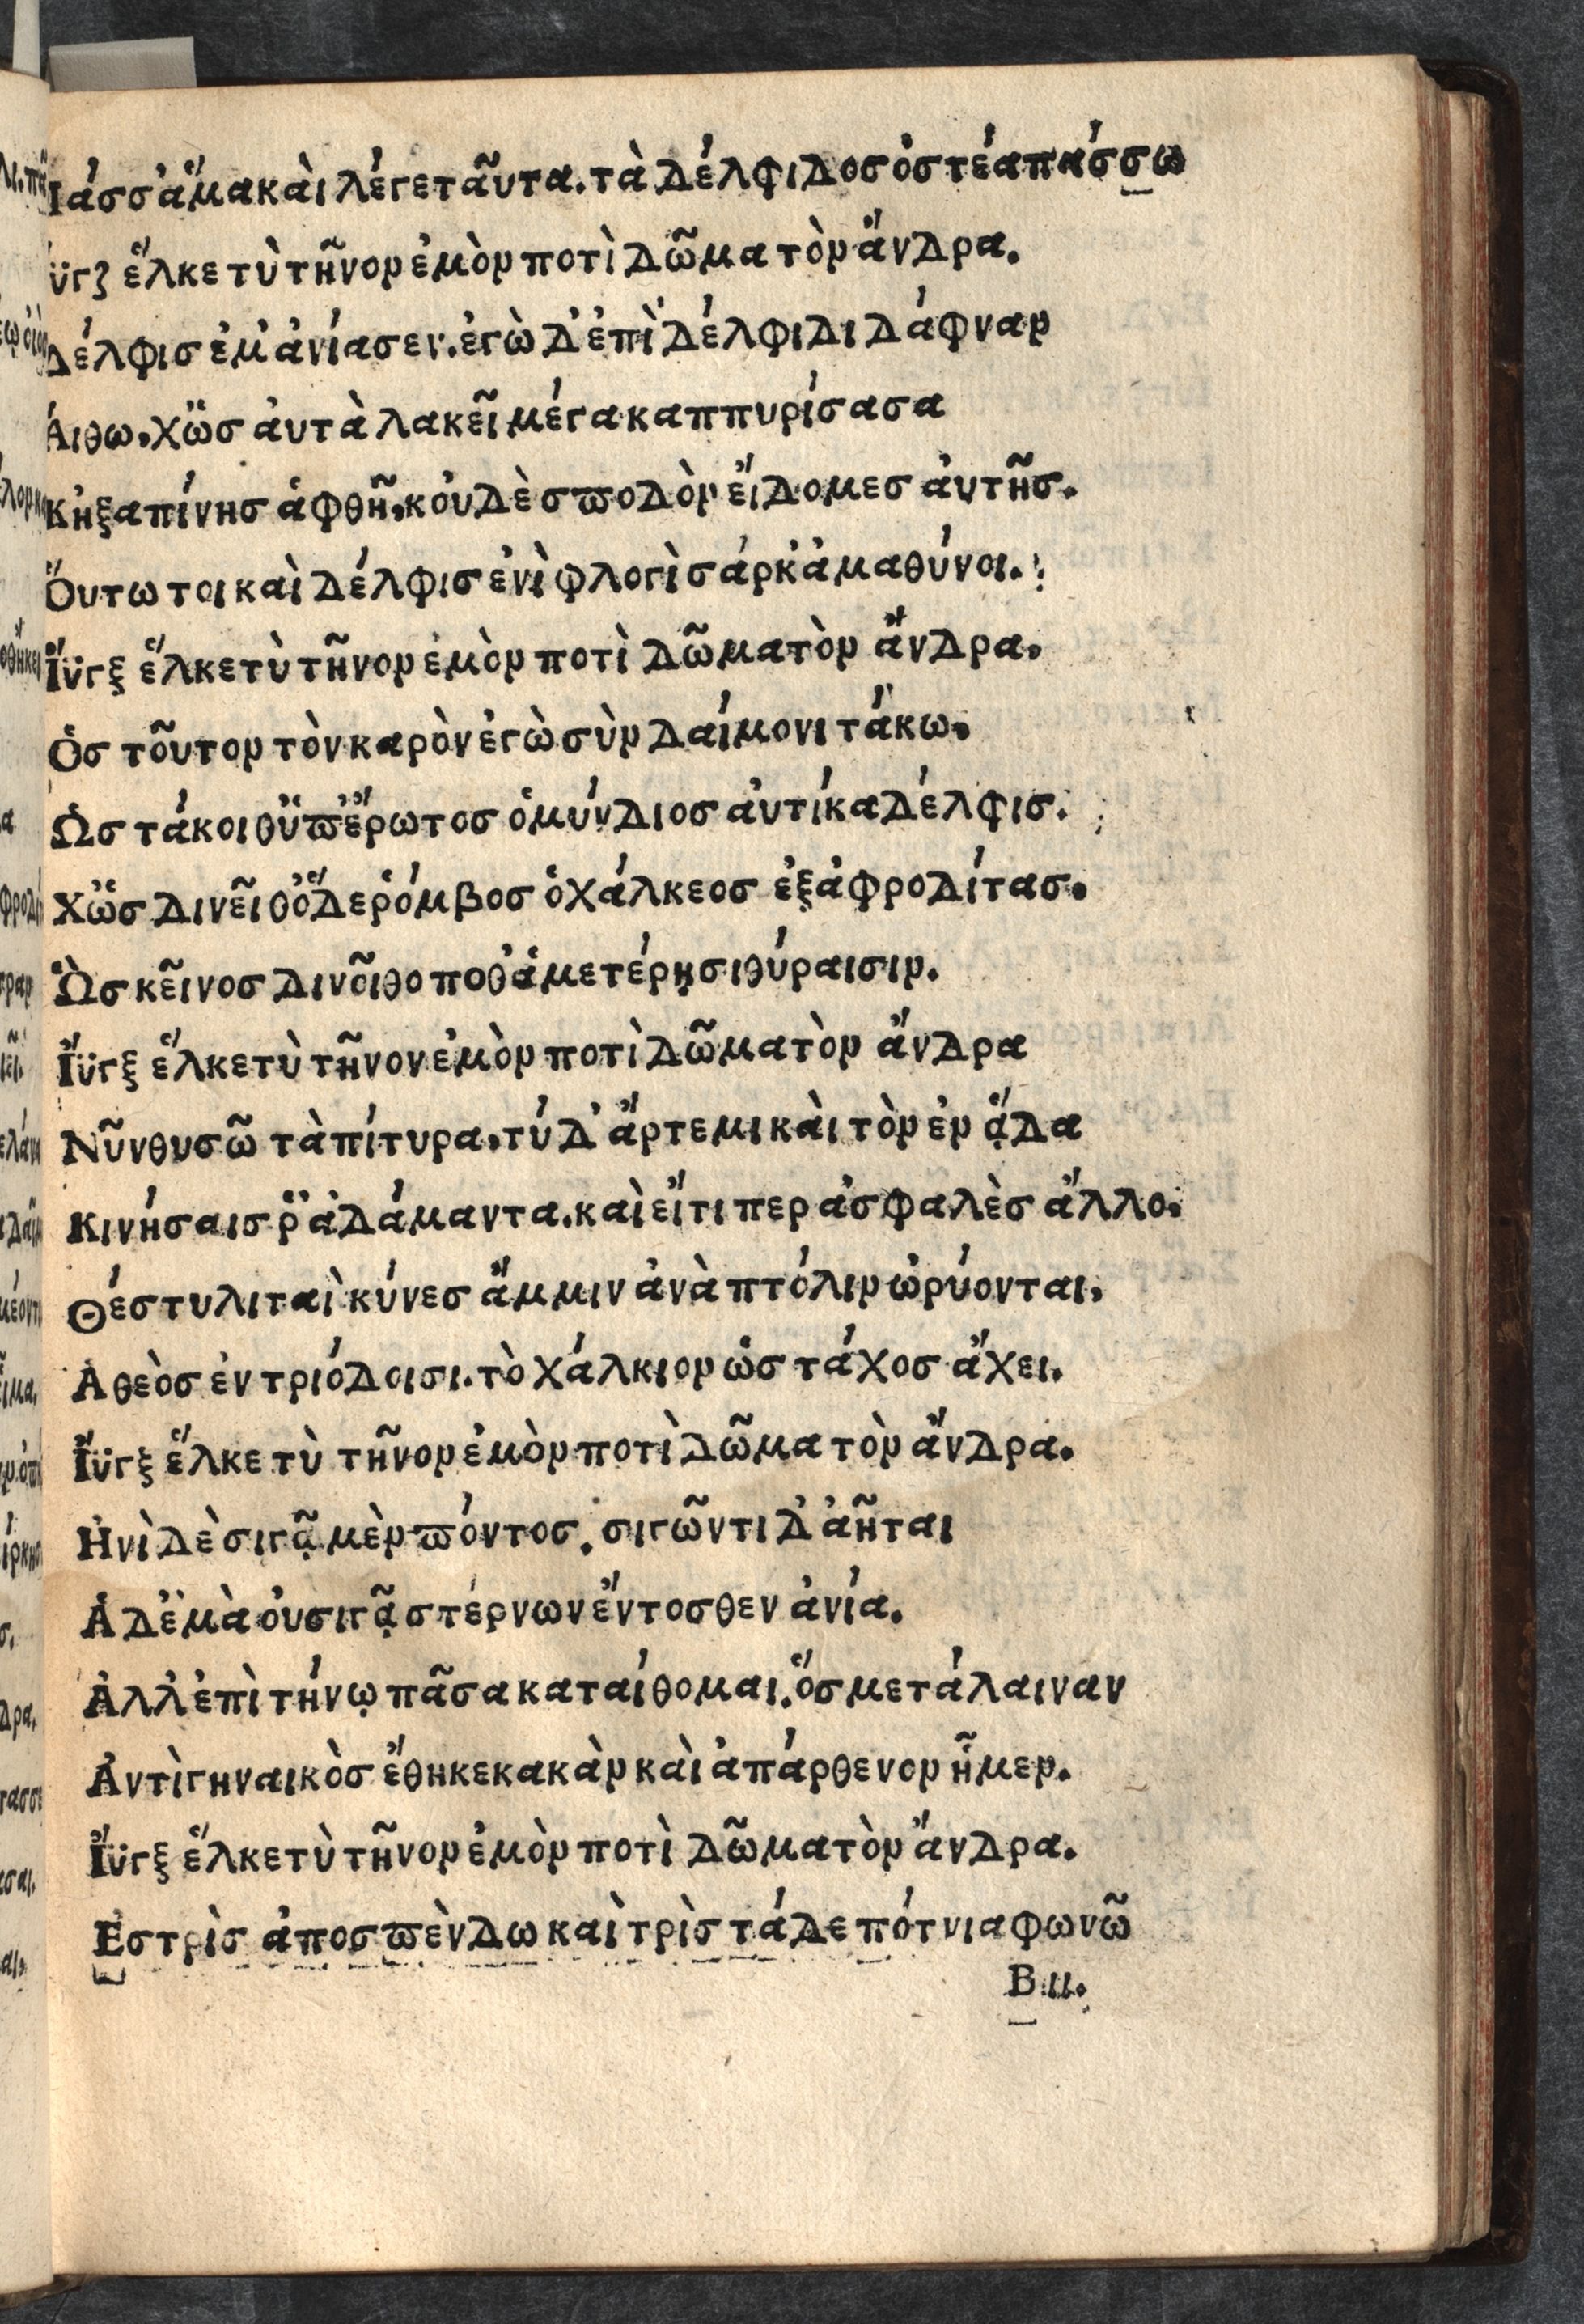 Ιάσσ' ἅμα καὶ λέγε ταῦτα. τὰ Δέλφιδος ὀστέα πάσσω
ϋγξ ἕλκε τὺ τῆνον ἐμὸν ποτὶ δῶμα τὸν ἄνδρα.
Δέλφις ἔμ' ἀνίασεν. ἐγὼ δ' ἐπὶ Δέλφιδι δάφναν
Αἴθω, χὣς ἀυτὰ λακεῖ μέγα καππυρίσασα
Κἠξαπίνης ἁφθῆ, κὀυδὲ σποδὸν εἴδομες ἀυτῆς.
Ὅυτω τοι καὶ Δέλφις ἐνὶ φλογὶ σάρκ' ἀμαθύνοι.
Ἴϋγξ ἕλκε τὺ τῆνον ἐμὸν ποτὶ δῶμα τὸν ἄνδρα.
Ὁς τοῦτον τὸν καρὸν ἐγὼ σὺν δαίμονι τάκω,
Ὡς τάκοιθ' ὑπ' ἔρωτος ὁ μύνδιος ἀυτίκα Δέλφις.
Χὣς δινεῖθ' ὅδε ῥόμβος ὁ χάλκεος ἐξ ἀφροδίτας.
Ὣς κεῖνος δινοῖθο ποθ' ἁμετέρῃσι θύραισιν.
Ἴϋγξ ἕλκε τὺ τῆνον ἐμὸν ποτὶ δῶμα τὸν ἄνδρα
Νῦν θυσῶ τὰ πίτυρα, τύ δ' ἄρτεμι καὶ τὸν ἐν ᾅδα
Κινήσαις ῥ' ἀδάμαντα. καὶ εἴ τι περ ἀσφαλὲς ἄλλο.
Θέστυλι ταὶ κύνες ἄμμιν ἀνὰ πτόλιν ὠρύονται,
Ἁ θεὸς ἐν τριόδοισι. τὸ χάλκιον ὡς τάχος ἄχει.
Ἴϋγξ ἕλκε τὺ τῆνον ἐμὸν ποτὶ δῶμα τὸν ἄνδρα.
Ηνὶ δὲ σιγᾷ μὲν πόντος. σιγῶντι δ' ἀῆται
Ἁ δ' ἐμὰ ὀυ σιγᾷ στέρνων ἔντοσθεν ἀνία.
Ἀλλ' ἐπὶ τήνῳ πᾶσα καταίθομαι. ὅς με τάλαιναν
Ἀντὶ γηναικὸς ἔθηκε κακὰν καὶ ἀπάρθενον ἦμεν.
Ἴϋγξ ἕλκε τὺ τῆνον ἐμὸν ποτὶ δῶμα τὸν ἄνδρα.
Ες τρὶς ἀποσπὲνδω καὶ τρὶς τάδε πότνια φωνῶ
B.ii.